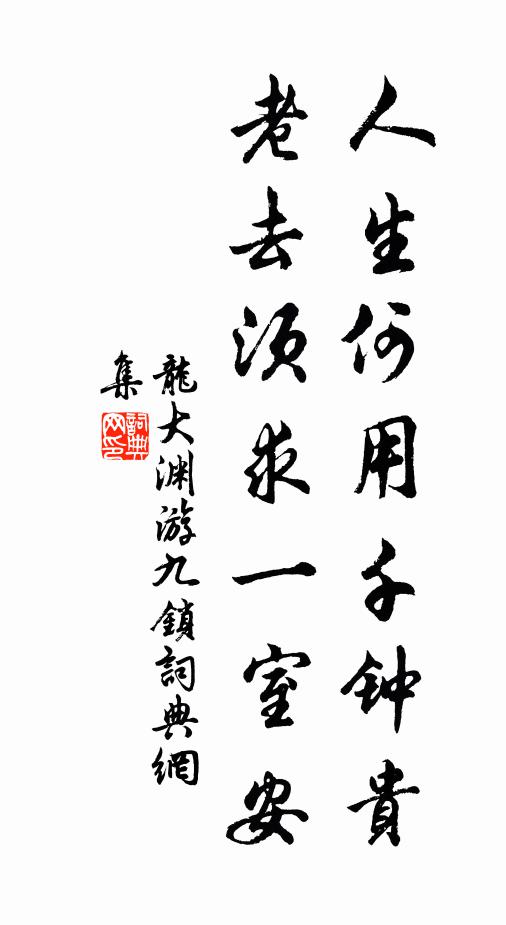 人生何用千钟貴
老去須求一室安
龍大渊游九鎖詞典網
集
詞典
网印